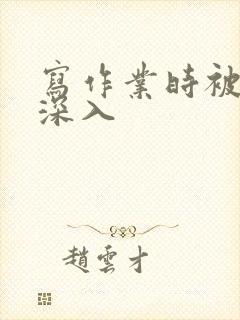 寫作業時被
深入
趙雲才